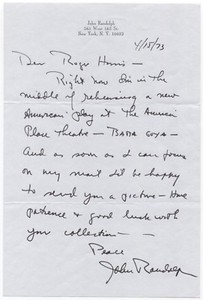 John Randolph
New York, N. Y.
4/15/73
Dear Roger Harris –
Right now I'm in the
middle of rehearsing a new
American play at The American
Place Theatre – BABA GOYA –
And as soon as I can focus
on my mail I'd be happy
to send you a picture – Have
patience & good luck with
your collection –
Peace
John Randolph